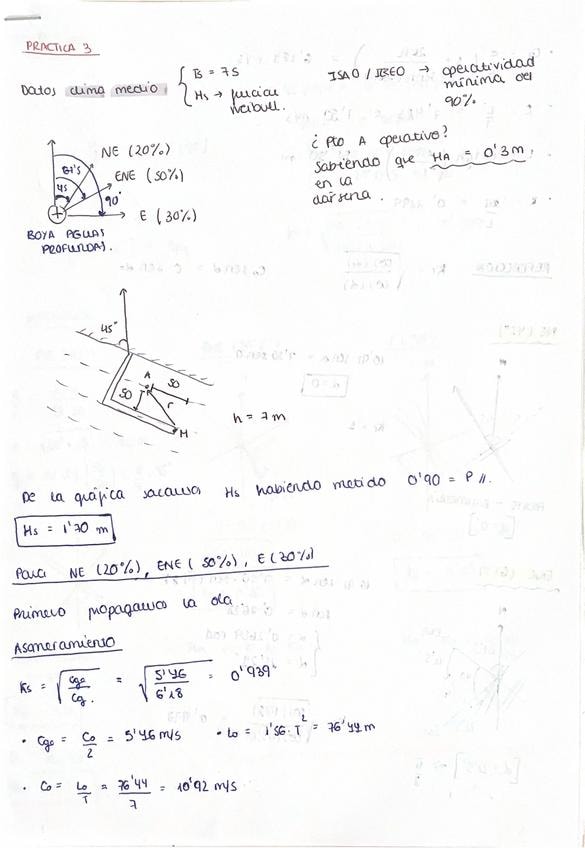 PRACTICA 3
Datos clima medio
B = 7S
Hs → funcion Weibull.
ISA0 / → operatividad mínima del 90%.
¿Pto A operativo?
Sabiendo que HA = 0'3m,
en la
dársena.
NE (20%)
ENE (50%)
E (30%)
67'5
45
90°
BOYA AGUAS
PROFUNDAS.
45°
A
50
50
r
M
h = 7 m
De la gráfica sacamos Hs habiendo metido 0'90 = P //.
Hs = 1'70 m
Para NE (20%), ENE (50%), E (30%)
Primero propagamos la ola.
Asomeramiento
Ks = √(Cgo / Cg.) = √(5'46 / 6'18) = 0'939
· Cgo = Co / 2 = 5'46 m/s · Lo = 1'56 · T² = 76'44 m
· Co = Lo / T = 76'44 / 7 = 10'92 m/s